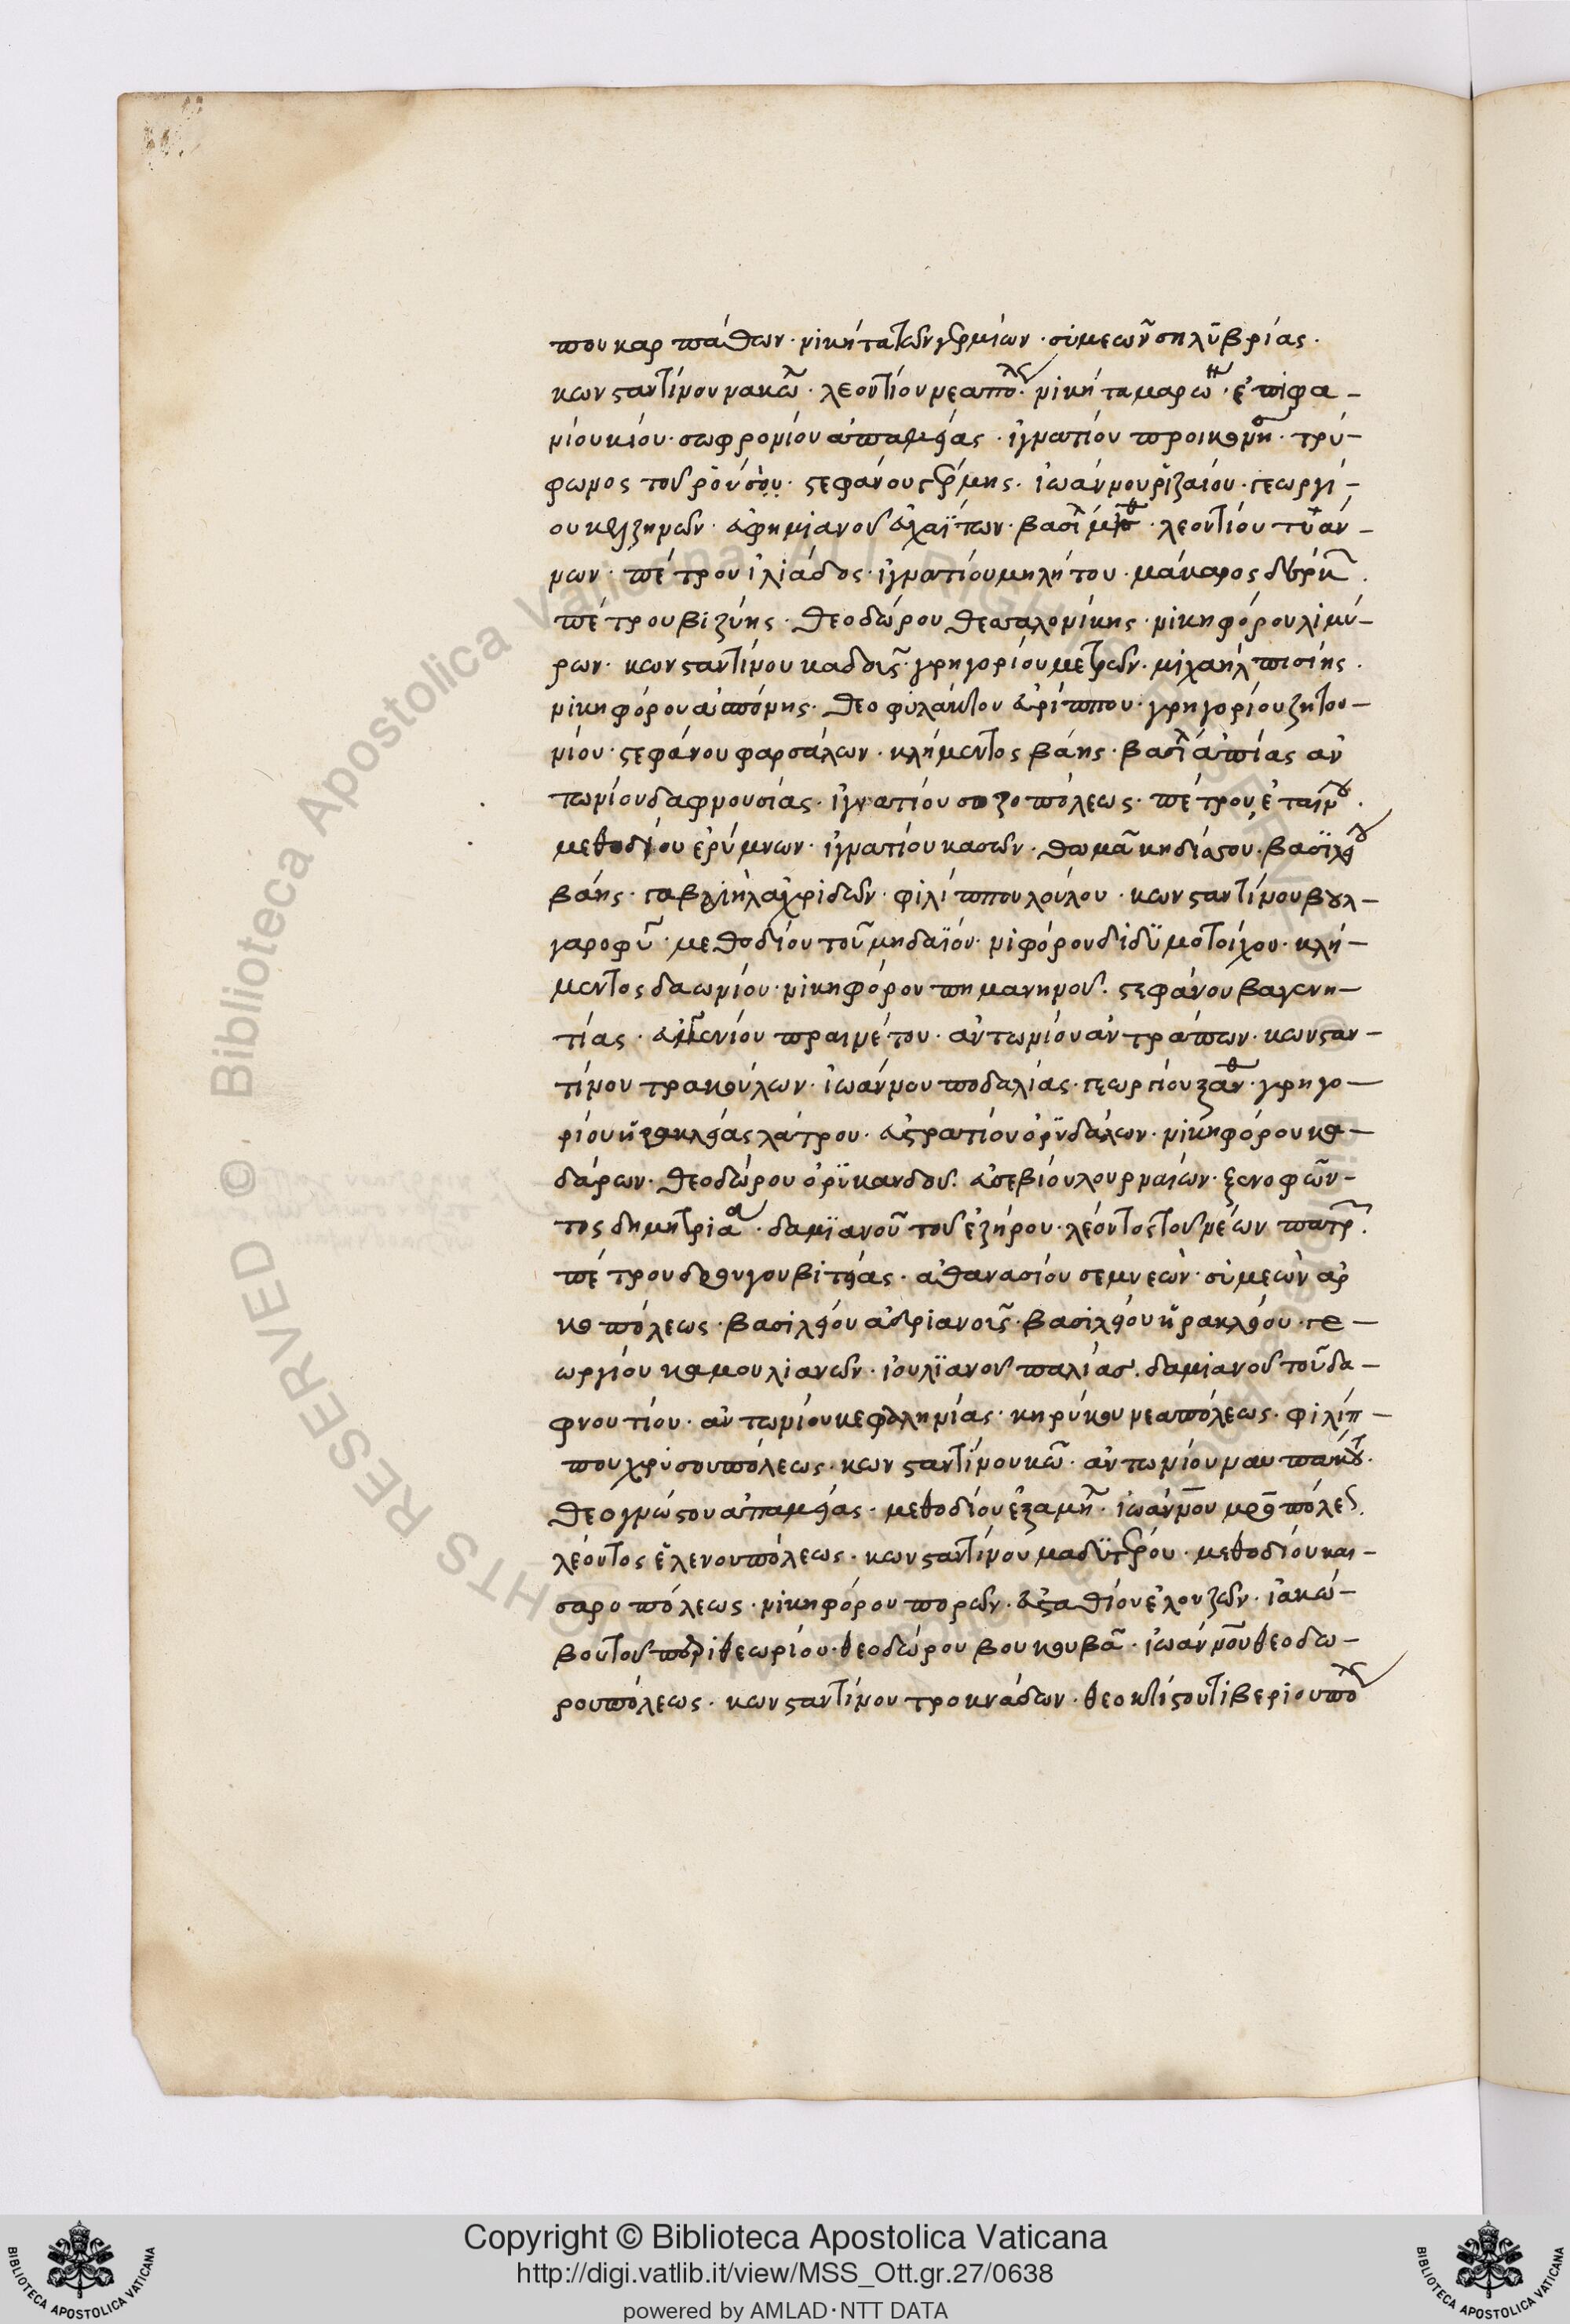 που καρπάθων · νικήτα τῶν γερμίων · συμεὼν σηλυβρίας ·
κωνσταντίνου νακω · λεοντίου νεαπο · νικήτα μαρω · ἐπιφα –
νίου κίου · σωφρονίου ἀπαμείας · ἰγνατίου προικον · τρύ –
φωνος τοῦ ῥουσίου · στεφάνου τερμης · ἰωάννου ῥιζαίου · γεωργί –
ου κυζηνῶν · εὐφημιανοῦ εὐχαΐτων · βασι · λεοντίου τυάν –
νων · πέτρου ἰλιάδος · ἰγνατίου μηλήτου · μάκαρος δυρκ ·
πέτρου βιζύης · θεοδώρου θεσσαλονίκης · νικηφόρου λιμύ –
ρων · κωνσταντίνου καδοις · γρηγορίου μετρῶν · μιχαὴλ πισίης ·
νικηφόρου αἰπόνης · θεοφυλάκτου εὐρίππου · γρηγορίου ζητου –
νίου · στεφάνου φαρσάλων · κλήμεντος βάης · βασι ἀπίας ἀν
τωνίου δαφνουσίας · ἰγνατίου σοζοπόλεως · πέτρου ἐταιν ·
μεθοδίου ἐρύμνων · ἰγνατίου κασῶν · θωμᾶ κηδίσσου · βασιλείου
βάης · γαβριὴλ ἀχριδῶν · φιλίππου λούλου · κωνσταντίνου βουλ –
γαροφυ · μεθοδίου τοῦ μηδαΐου · νιφόρου διδυμοτοίχου · κλή –
μεντος δαωνίου · νικηφόρου πημανηνοῦ · στεφάνου βαγενη –
τίας · εὐμενίου πραινέτου · ἀντωνίου ἀντράπων · κωνσταν –
τίνου τρακούλων · ἰωάννου ποδαλίας · γεωργίου ξαν · γρηγο –
ρίου ἡρακλείας λάτρου · εὐστρατίου ὀρυδάλων · νικηφόρου κα –
δάρων · θεοδώρου ὀρυκανδου · εὐσεβίου λουρμαιων · ξενοφῶν –
τος δημητρια · δαμϊανοῦ τοῦ ἐζήρου · λέοντος τοῦ νέων πατρ ·
πέτρου δρουγουβιτείας · ἀθανασίου σεμνεῶν · συμεὼν ἀρ
κο πόλεως · βασιλείου ἀδριανοις · βασιλείου ἡρακλείου · γε –
ωργίου καμουλιανῶν · ἰουλϊανοῦ παλίας · δαμιανοῦ τοῦ δα –
φνουτίου · ἀντωνίου κεφαληνίας · κηρύκου νεαπόλεως · φιλίπ –
που χρυσουπόλεως · κωνσταντίνου κω · ἀντωνίου ναυπάκτου ·
θεογνώστου ἀπαμείας · μεθοδίου ἐξαμη · ἰωάννου πόλε
λέοντος ἑλενουπόλεως · κωνσταντίνου μαδύτρου · μεθοδίου και –
σαροπόλεως · νικηφόρου πορῶν · εὐσταθίου ἐλουζῶν · ἰακώ –
βου τοῦ περιθεωρίου · θεοδώρου βουκουβα · ἰωάννου θεοδω –
ρουπόλεως · κωνσταντίνου τροκνάδων · θεοκτίστου τιβεριουπο
Copyright © Biblioteca Apostolica Vaticana
http://digi.vatlib.it/view/MSS_Ott.gr.27/0638
powered by AMLAD·NTT DATA